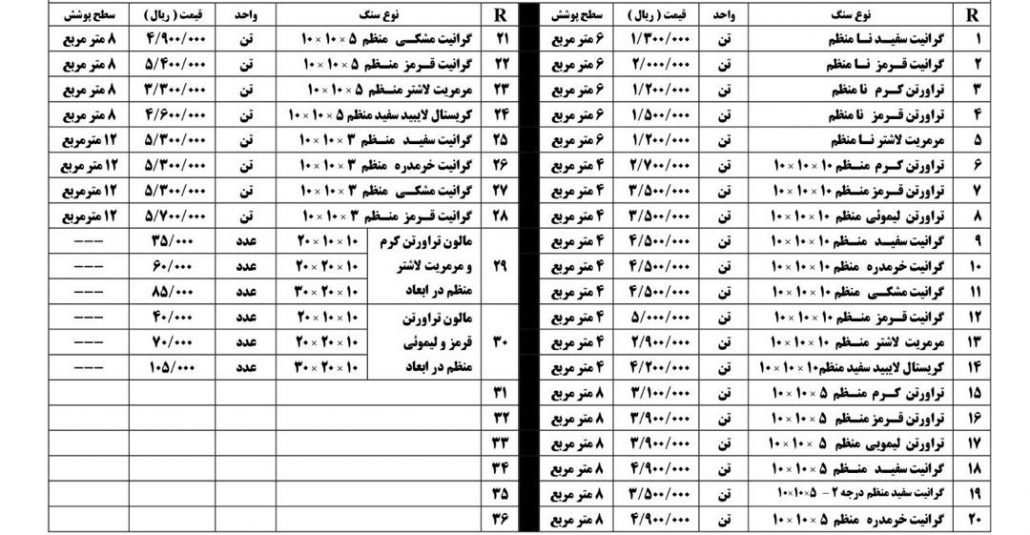 R نوع سنگ واحد قیمت ( ریال ) سطح پوشش
۱ گرانیت سفید نا منظم تن ۱/۳۰۰/۰۰۰ ۶ متر مربع
۲ گرانیت قرمز نا منظم تن ۲/۰۰۰/۰۰۰ ۶ متر مربع
۳ تراورتن کرم نا منظم تن ۱/۲۰۰/۰۰۰ ۶ متر مربع
۴ تراورتن قرمز نا منظم تن ۱/۵۰۰/۰۰۰ ۶ متر مربع
۵ مرمریت لاشتر نا منظم تن ۱/۲۰۰/۰۰۰ ۶ متر مربع
۶ تراورتن کرم منظم ۱۰×۱۰×۱۰ تن ۲/۷۰۰/۰۰۰ ۴ متر مربع
۷ تراورتن قرمز منظم ۱۰×۱۰×۱۰ تن ۳/۵۰۰/۰۰۰ ۴ متر مربع
۸ تراورتن لیموئی منظم ۱۰×۱۰×۱۰ تن ۳/۵۰۰/۰۰۰ ۴ متر مربع
۹ گرانیت سفید منظم ۱۰×۱۰×۱۰ تن ۴/۵۰۰/۰۰۰ ۴ متر مربع
۱۰ گرانیت خرمدره منظم ۱۰×۱۰×۱۰ تن ۴/۵۰۰/۰۰۰ ۴ متر مربع
۱۱ گرانیت مشکی منظم ۱۰×۱۰×۱۰ تن ۴/۵۰۰/۰۰۰ ۴ متر مربع
۱۲ گرانیت قرمز منظم ۱۰×۱۰×۱۰ تن ۵/۰۰۰/۰۰۰ ۴ متر مربع
۱۳ مرمریت لاشتر منظم ۱۰×۱۰×۱۰ تن ۲/۹۰۰/۰۰۰ ۴ متر مربع
۱۴ کریستال لایبید سفید منظم ۱۰×۱۰×۱۰ تن ۴/۲۰۰/۰۰۰ ۴ متر مربع
۱۵ تراورتن کرم منظم ۵×۱۰×۱۰ تن ۳/۱۰۰/۰۰۰ ۸ متر مربع
۱۶ تراورتن قرمز منظم ۵×۱۰×۱۰ تن ۳/۹۰۰/۰۰۰ ۸ متر مربع
۱۷ تراورتن لیمویی منظم ۵×۱۰×۱۰ تن ۳/۹۰۰/۰۰۰ ۸ متر مربع
۱۸ گرانیت سفید منظم ۵×۱۰×۱۰ تن ۴/۹۰۰/۰۰۰ ۸ متر مربع
۱۹ گرانیت سفید منظم درجه ۲ – ۵×۱۰×۱۰ تن ۳/۵۰۰/۰۰۰ ۸ متر مربع
۲۰ گرانیت خرمدره منظم ۵×۱۰×۱۰ تن ۴/۹۰۰/۰۰۰ ۸ متر مربع
R نوع سنگ واحد قیمت ( ریال ) سطح پوشش
۲۱ گرانیت مشکی منظم ۵×۱۰×۱۰ تن ۴/۹۰۰/۰۰۰ ۸ متر مربع
۲۲ گرانیت قرمز منظم ۵×۱۰×۱۰ تن ۵/۴۰۰/۰۰۰ ۸ متر مربع
۲۳ مرمریت لاشتر منظم ۵×۱۰×۱۰ تن ۳/۳۰۰/۰۰۰ ۸ متر مربع
۲۴ کریستال لایبید سفید منظم ۵×۱۰×۱۰ تن ۴/۶۰۰/۰۰۰ ۸ متر مربع
۲۵ گرانیت سفید منظم ۳×۱۰×۱۰ تن ۵/۳۰۰/۰۰۰ ۱۲ مترمربع
۲۶ گرانیت خرمدره منظم ۳×۱۰×۱۰ تن ۵/۳۰۰/۰۰۰ ۱۲ مترمربع
۲۷ گرانیت مشکی منظم ۳×۱۰×۱۰ تن ۵/۳۰۰/۰۰۰ ۱۲ مترمربع
۲۸ گرانیت قرمز منظم ۳×۱۰×۱۰ تن ۵/۷۰۰/۰۰۰ ۱۲ مترمربع
مالون تراورتن کرم ۱۰×۱۰×۲۰ عدد ۳۵/۰۰۰ ---
۲۹ و مرمریت لاشتر ۱۰×۲۰×۲۰ عدد ۶۰/۰۰۰ ---
منظم در ابعاد ۱۰×۲۰×۳۰ عدد ۸۵/۰۰۰ ---
مالون تراورتن ۱۰×۱۰×۲۰ عدد ۴۰/۰۰۰ ---
۳۰ قرمز و لیموئی ۱۰×۲۰×۲۰ عدد ۷۰/۰۰۰ ---
منظم در ابعاد ۱۰×۲۰×۳۰ عدد ۱۰۵/۰۰۰ ---
۳۱
۳۲
۳۳
۳۴
۳۵
۳۶